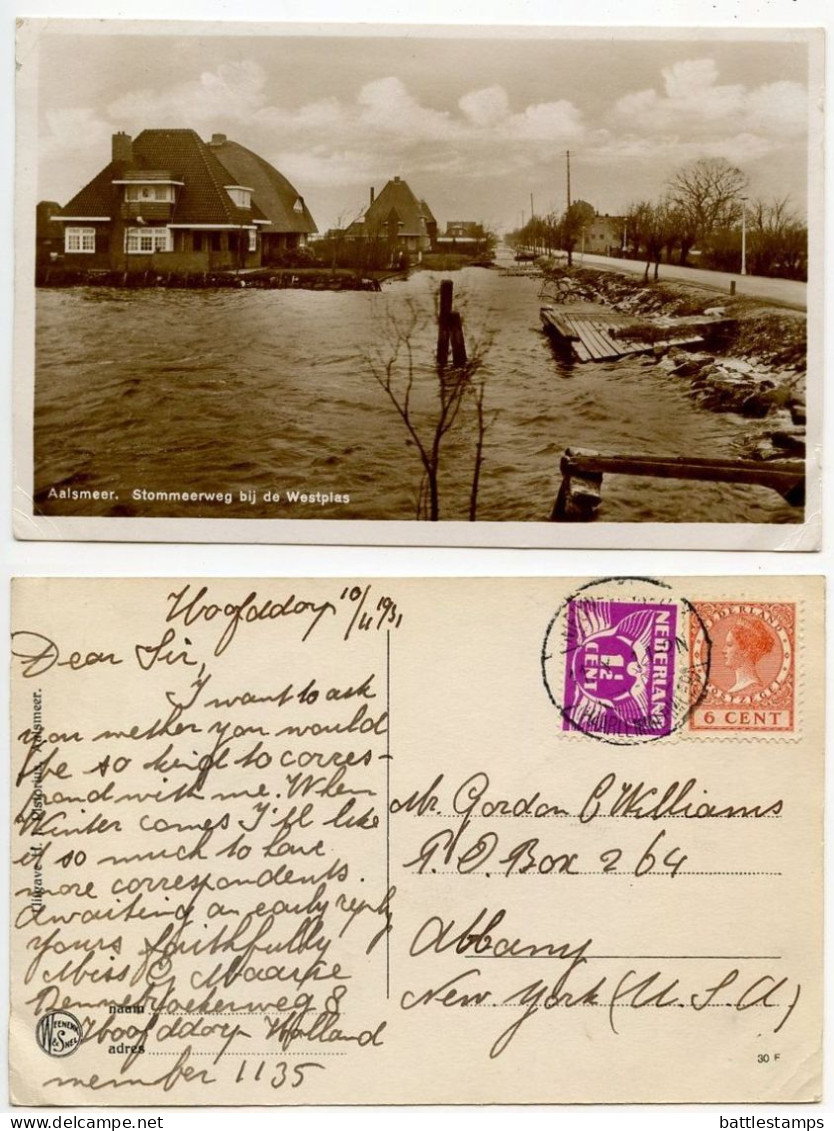 Aalsmeer. Stommeerweg bij de Westplas
Hoofddorp 10/11 1931
Dear Sir,
I want to ask
you wether you would
be so kind to corres-
pond with me. When
Winter comes I'll like
it so much to have
more correspondents.
Awaiting an early reply
yours faithfully
Miss G Maarse
8
Hoofddorp Holland
member 1135
naam
adres
Aalsmeer.
WEENENK & SNEL
NEDERLAND
1½
CENT
NEDERLAND
6 CENT
Mr. Gordon C Williams
P.O. Box 264
Albany
New York (U.S.A)
30 F
battlestamps